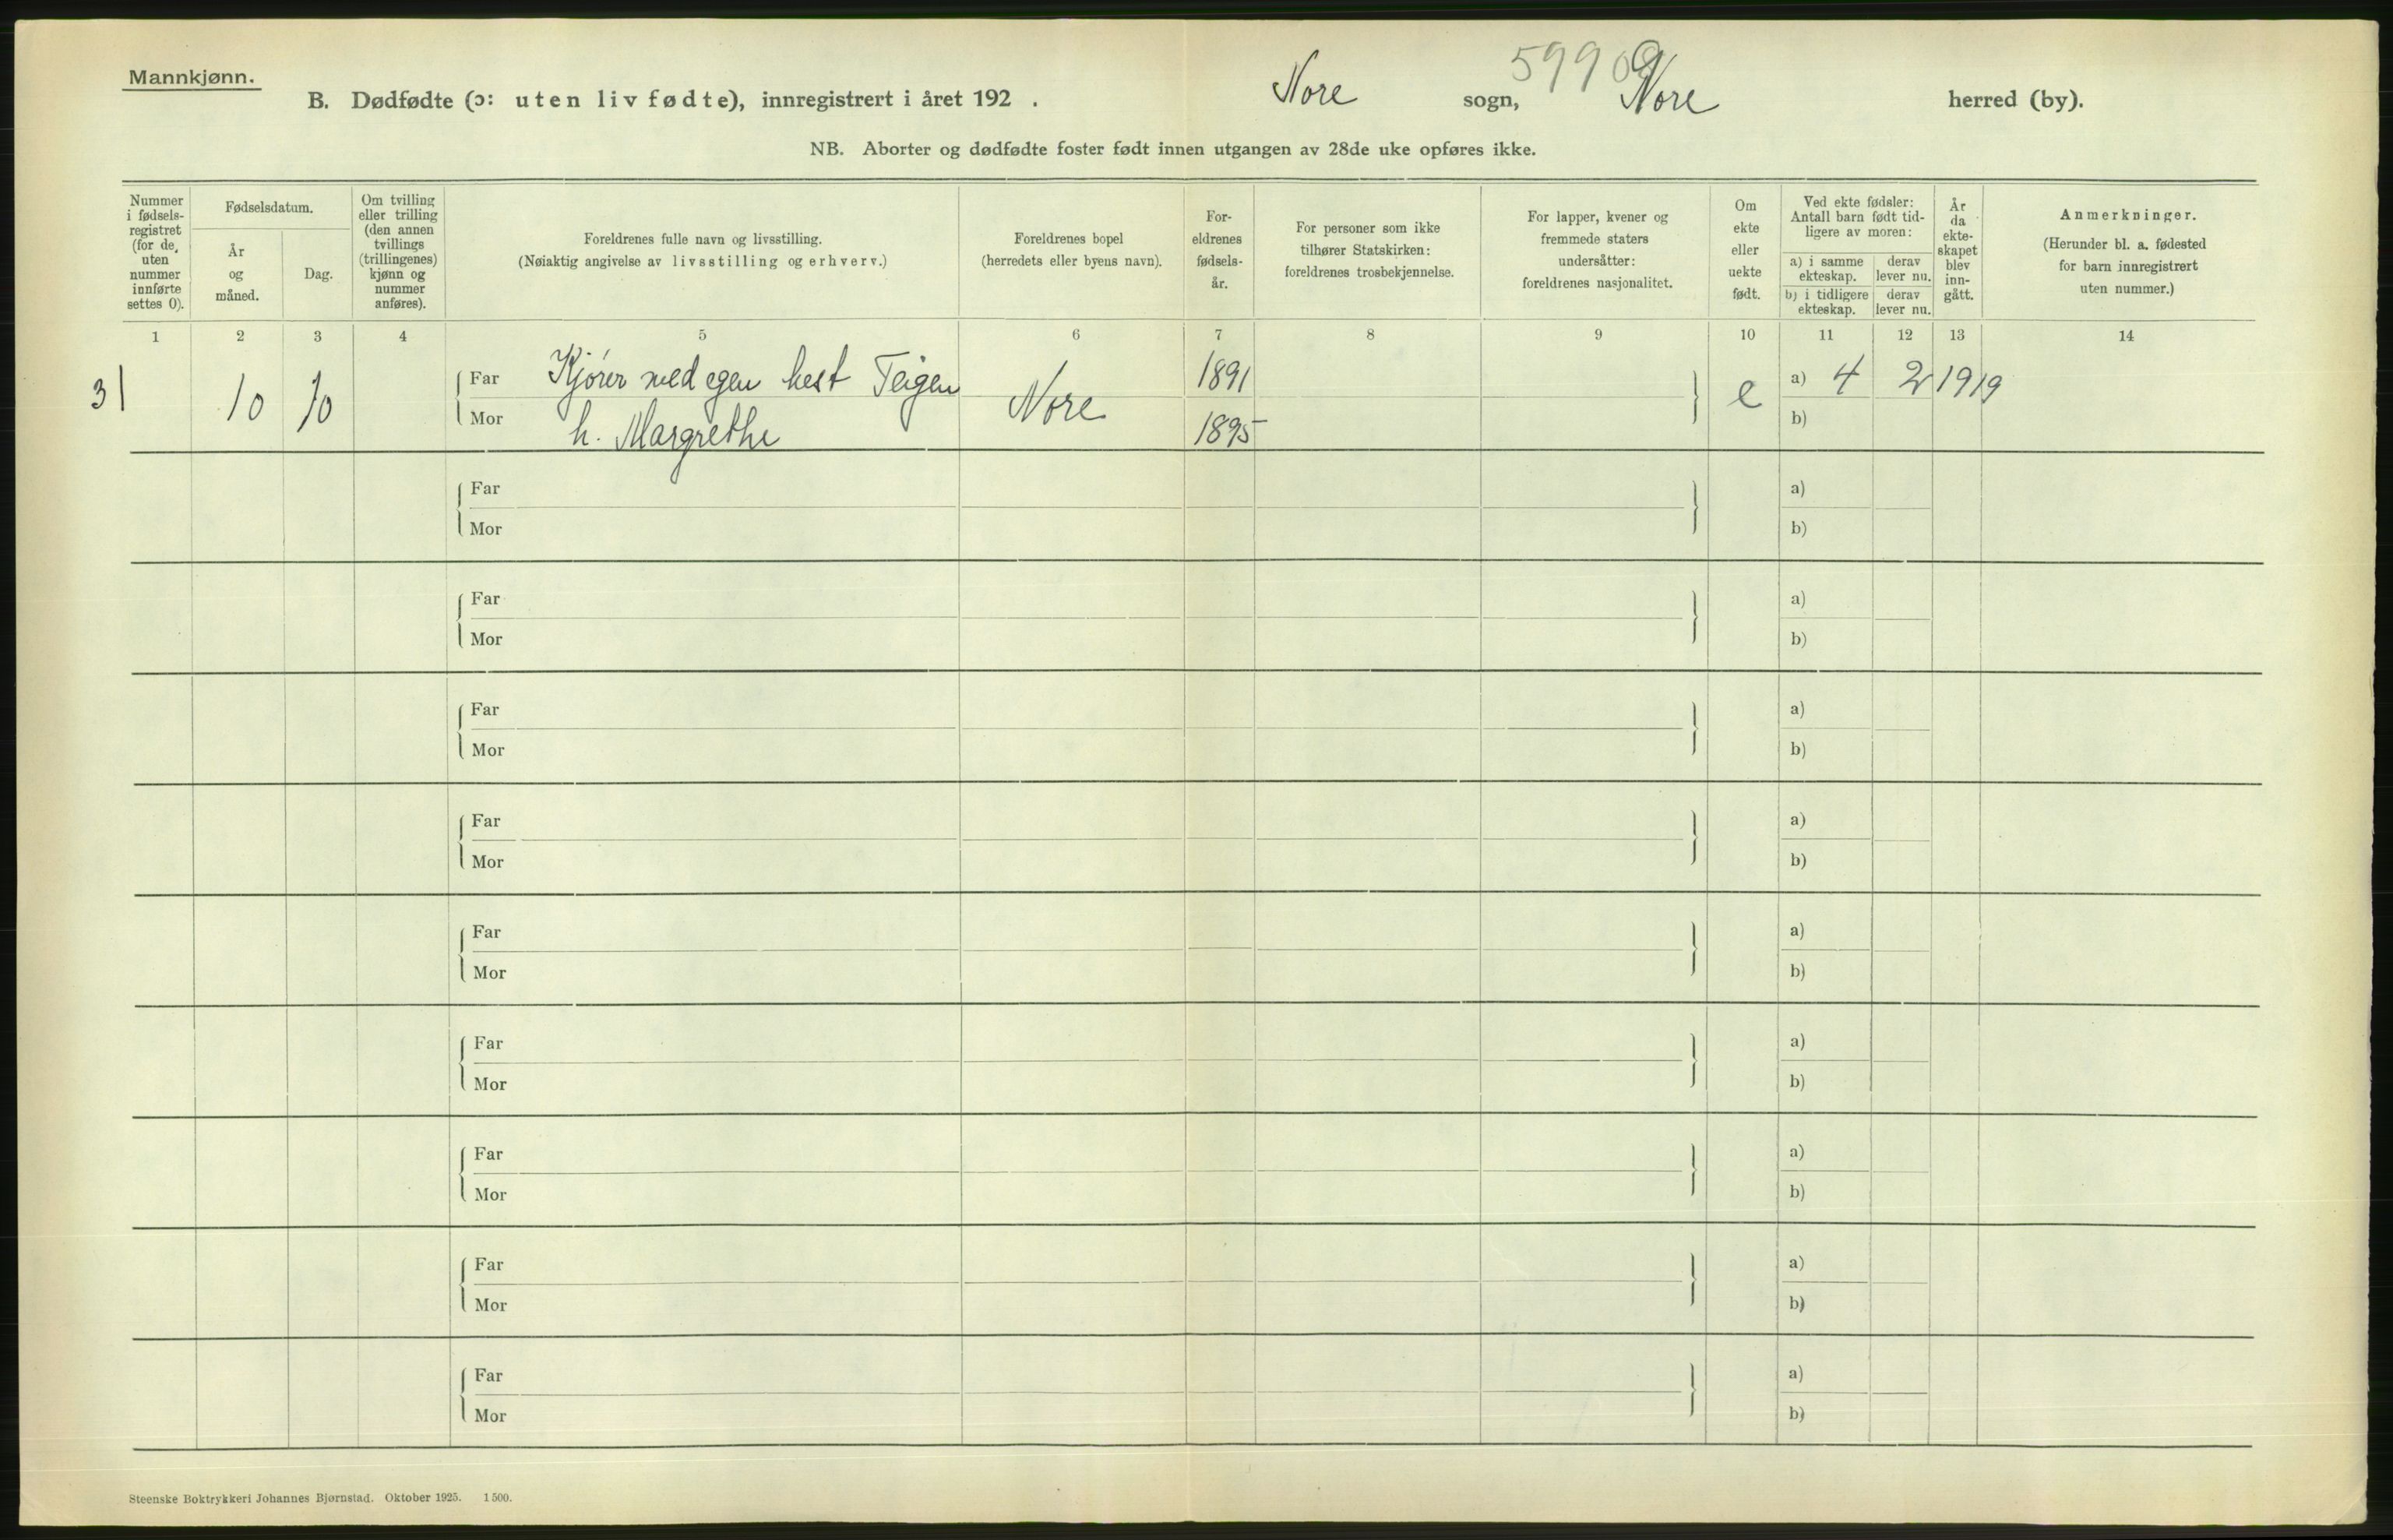 Mannkjønn.
59909
B. Dødfødte (ɔ: uten liv fødte), innregistrert i året 192 . Nore sogn, Nore herred (by).
NB. Aborter og dødfødte foster født innen utgangen av 28de uke opføres ikke.
Nummer i fødselsregistret (for de uten nummer innførte settes 0).
Fødselsdatum.
År og måned.
Dag.
Om tvilling eller trilling (den annen tvillings (trillingenes) kjønn og nummer anføres).
Foreldrenes fulle navn og livsstilling.
(Nøiaktig angivelse av livsstilling og erhverv.)
Foreldrenes bopel
(herredets eller byens navn).
Foreldrenes fødselsår.
For personer som ikke tilhører Statskirken: foreldrenes trosbekjennelse.
For lapper, kvener og fremmede staters undersåtter: foreldrenes nasjonalitet.
Om ekte eller uekte født.
Ved ekte fødsler: Antall barn født tidligere av moren:
a) i samme ekteskap.
derav lever nu.
b) i tidligere ekteskap.
derav lever nu.
År da ekteskapet blev inngått.
Anmerkninger.
(Herunder bl. a. fødested for barn innregistrert uten nummer.)
1 2 3 4 5 6 7 8 9 10 11 12 13 14
31 10 10 Far Kjører med egen hest Teigen Nore 1891 e a) 4 2 1919
Mor h. Margrethe 1895 b)
Far a)
Mor b)
Far a)
Mor b)
Far a)
Mor b)
Far a)
Mor b)
Far a)
Mor b)
Far a)
Mor b)
Far a)
Mor b)
Far a)
Mor b)
Far a)
Mor b)
Steenske Boktrykkeri Johannes Bjørnstad. Oktober 1925. 1500.